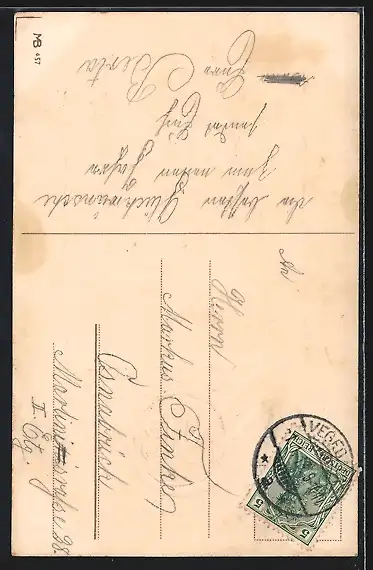 MB 457
die besten Glückwünsche
zum neuen Jahre
sendet Euch
Eure Berta
An
Herrn
Markus Finke
Osnabrück
Martinistraße 98.
II. Etg.
VEGES
5
5